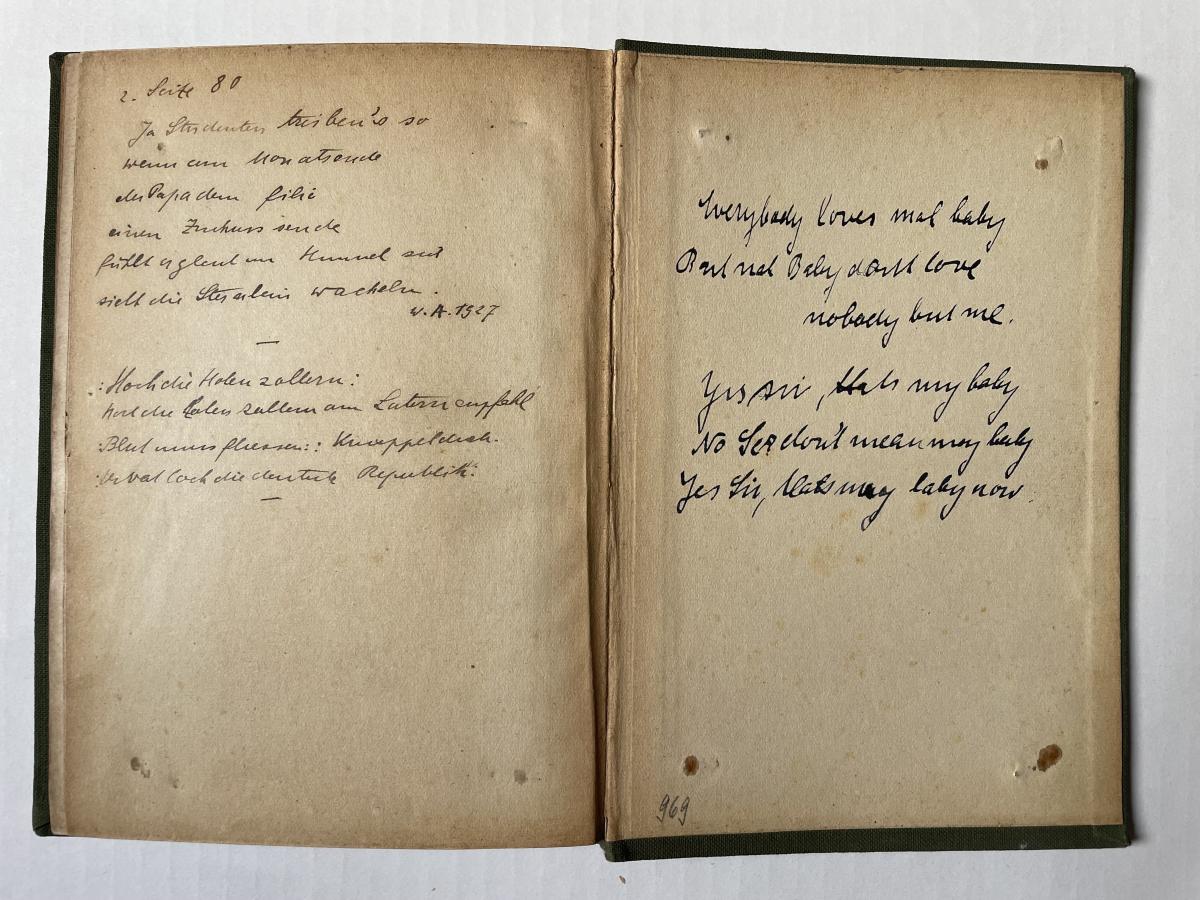 z. Seite 80
Ja Studenten treiben's so
wenn am Monatsende
der Papa dem filio
einen Zuchuss sende
fühlt er gleich im Himmel sich
sieht die Sternlein wackeln.
W. A. 1927
—
:Hoch die Hohenzollern:
hoch die Hohenzollern am Laternenpfahl
Blut muss fliessen:: Knueppeldick.
hoch die deutsche Republik:
—
Everybody loves mal baby
But mal Baby don't love
nobody but me.
Yes sir, thats my baby
No Ser don't mean moy baby
Yes Sir, thats moy baby now.
969